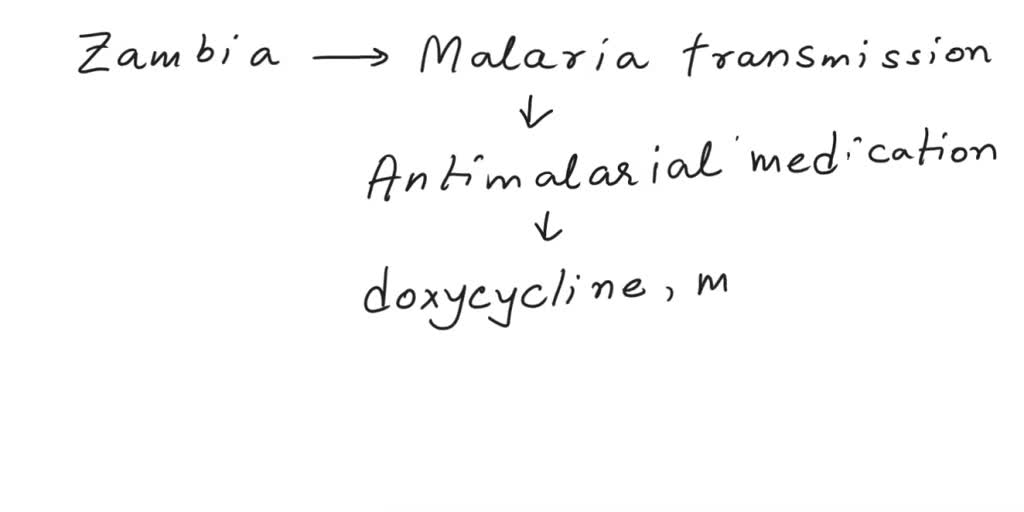 Zambia → Malaria transmission
↓
Antimalarial medication
↓
doxycycline, m